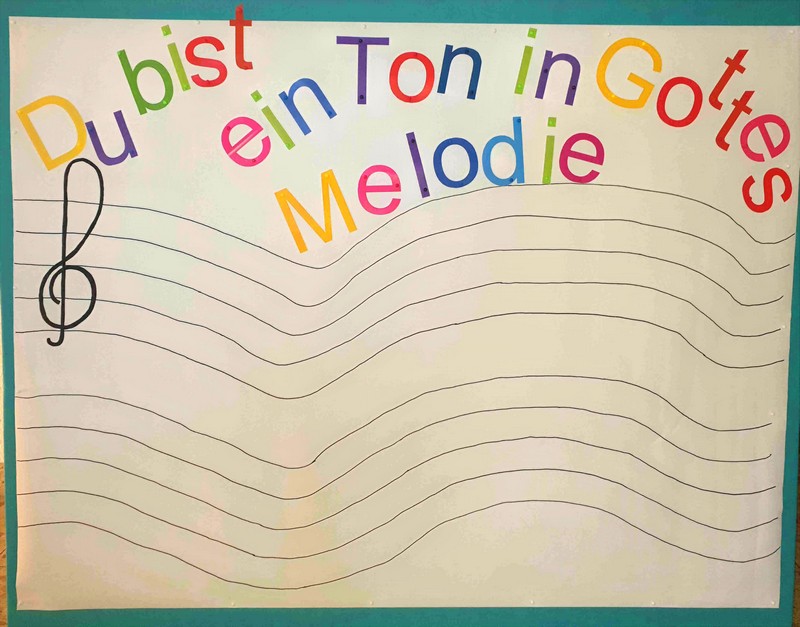 Du bist ein Ton in Gottes
Melodie